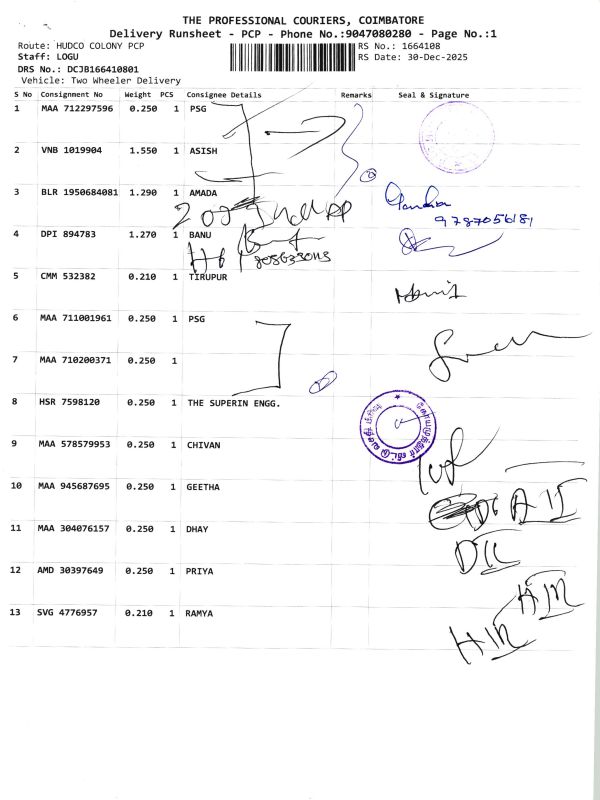 THE PROFESSIONAL COURIERS, COIMBATORE
Delivery Runsheet - PCP - Phone No.:9047080280 - Page No.:1
Route: HUDCO COLONY PCP
RS No.: 1664108
Staff: LOGU
RS Date: 30-Dec-2025
DRS No.: DCJB166410801
Vehicle: Two Wheeler Delivery
S No Consignment No Weight PCS Consignee Details Remarks Seal & Signature
1 MAA 712297596 0.250 1 PSG
2 VNB 1019904 1.550 1 ASISH
3 BLR 1950684081 1.290 1 AMADA
9787056181
4 DPI 894783 1.270 1 BANU
5 CMM 532382 0.210 1 TIRUPUR
6 MAA 711001961 0.250 1 PSG
7 MAA 710200371 0.250 1
8 HSR 7598120 0.250 1 THE SUPERIN ENGG.
9 MAA 578579953 0.250 1 CHIVAN
10 MAA 945687695 0.250 1 GEETHA
11 MAA 304076157 0.250 1 DHAY
12 AMD 30397649 0.250 1 PRIYA
13 SVG 4776957 0.210 1 RAMYA